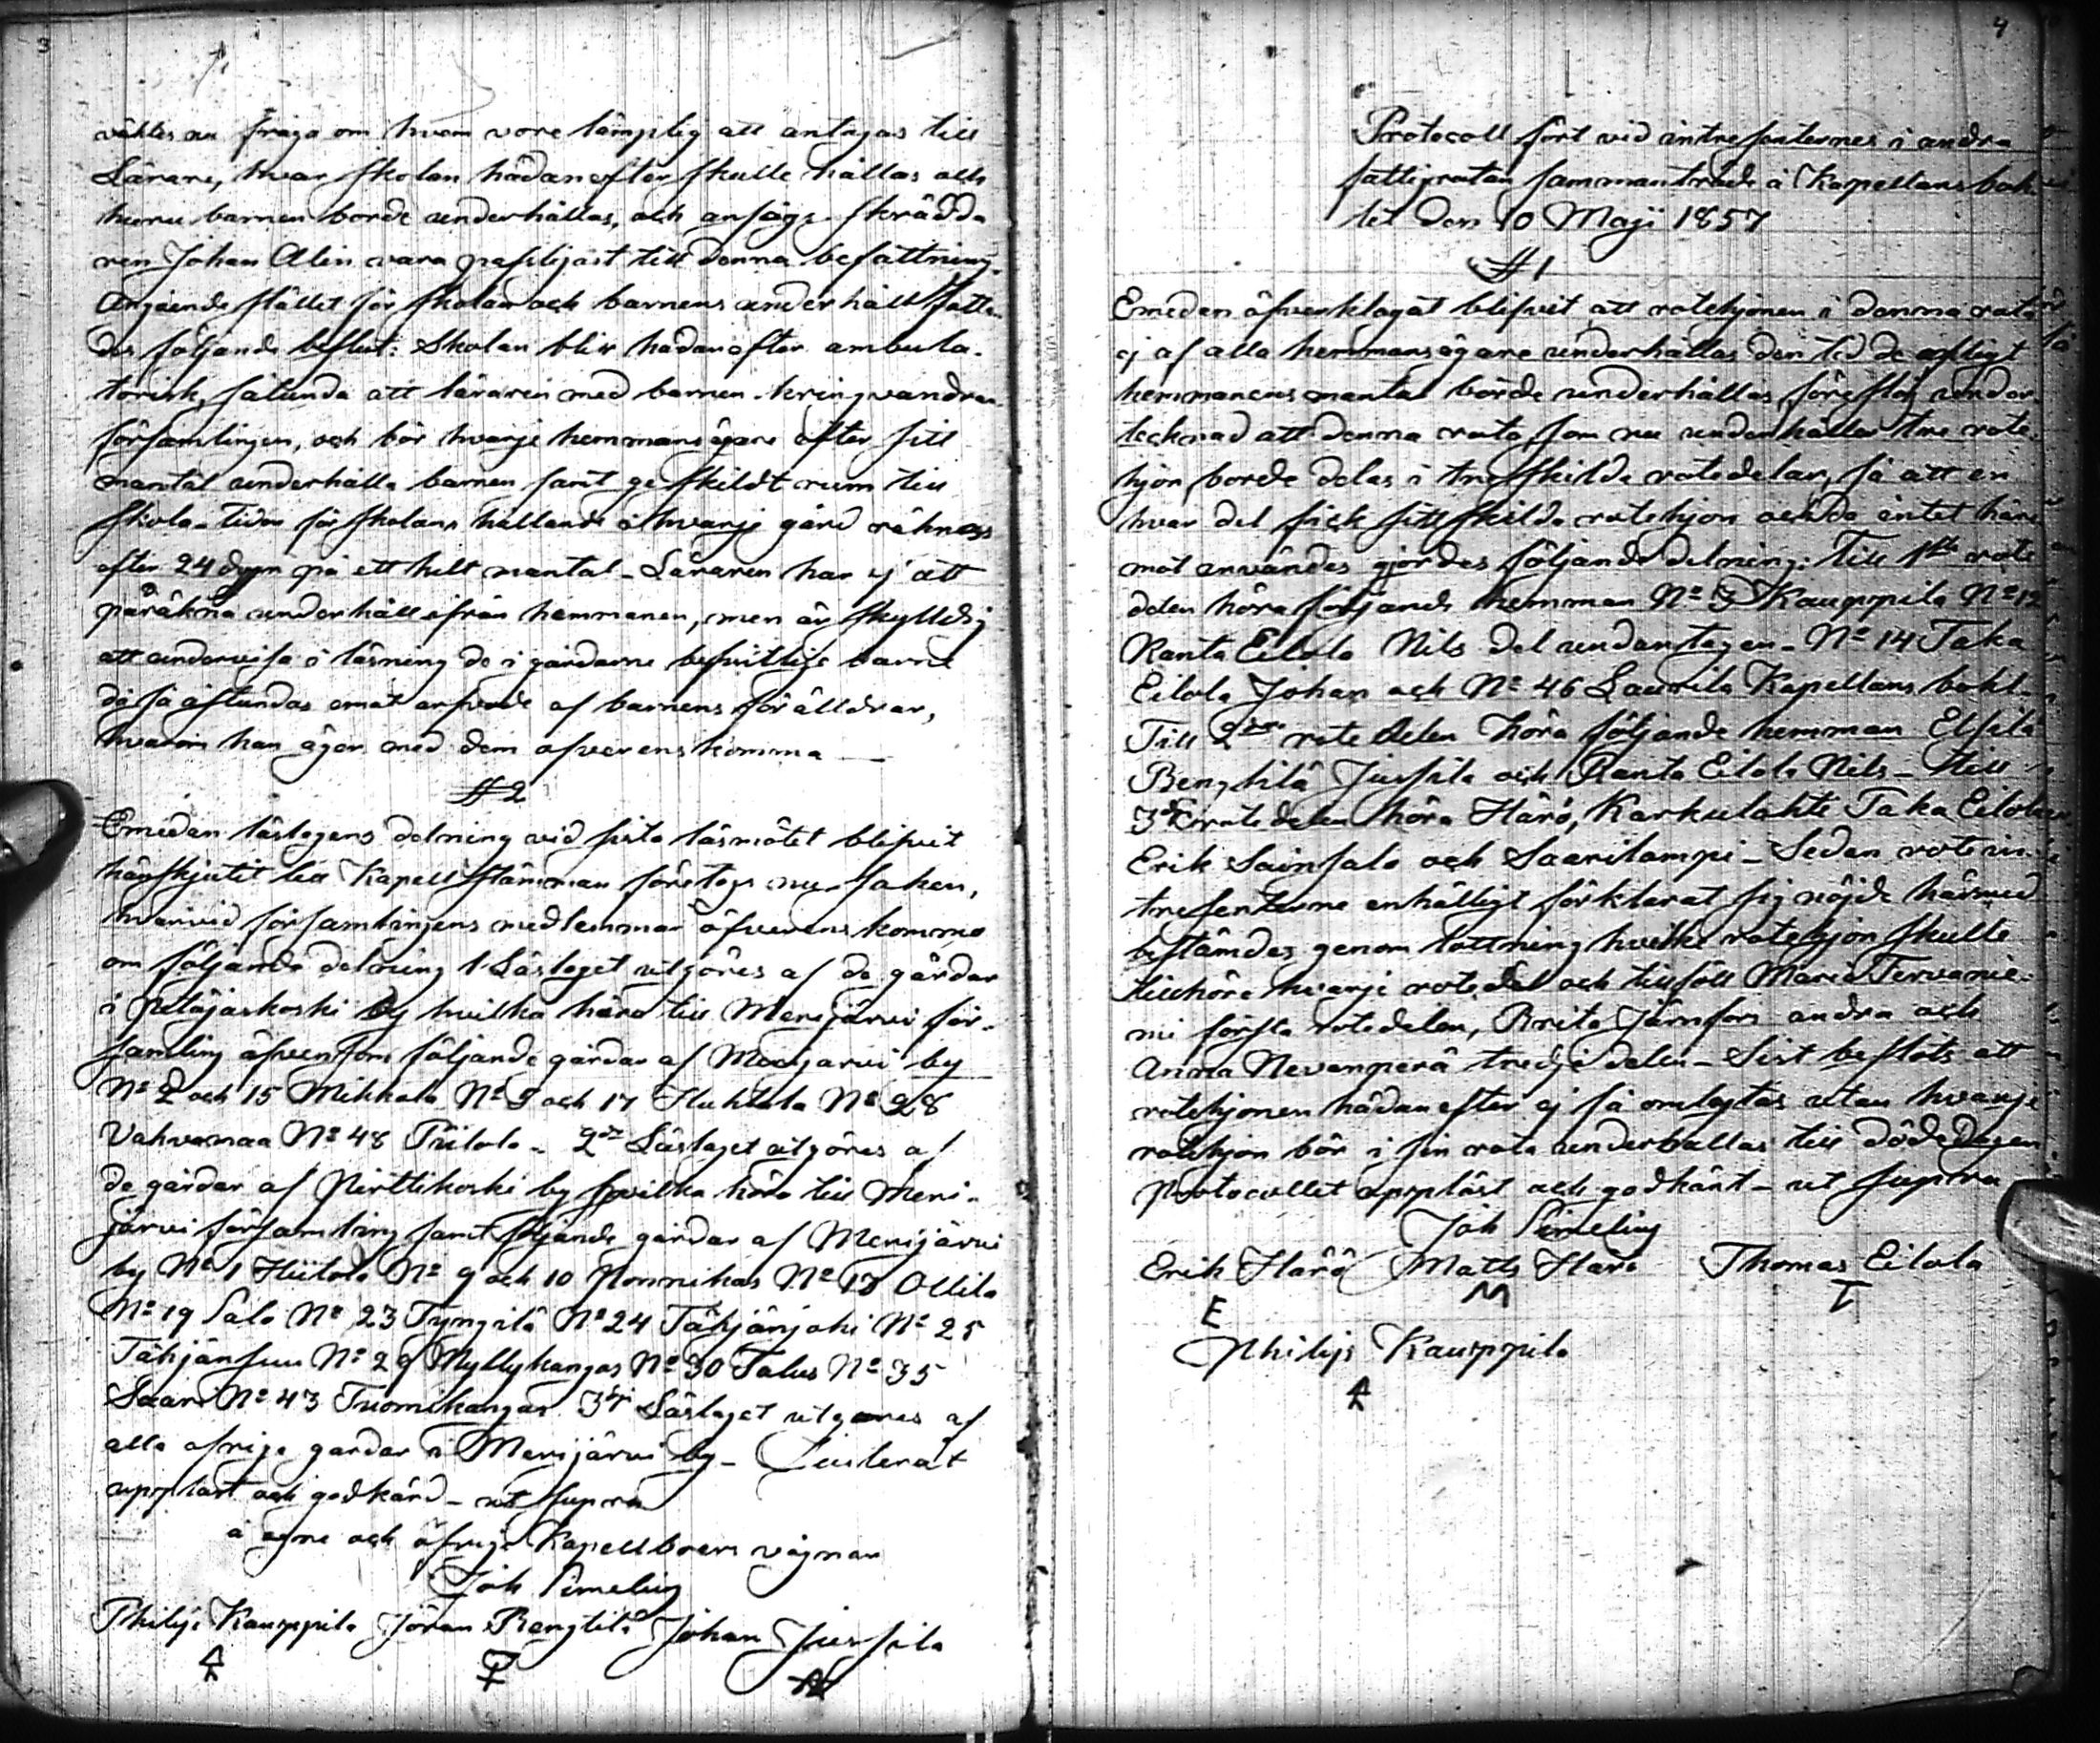 3
väktes nu fråga om hvem vore lämplig att antagas till
Lärare, hvar skolan hädanefter skulle hållas och
huru barnen borde underhållas, och ansågs skrädda-
ren Johan Alin vara passligast till denna befattning.
Angående stället för skolan och barnens underhåll fatta-
des följande beslut: Skolan blir hädanefter ambula-
torisk, sålunda att läraren med barnen kringvandrar
församlingen, och bör hvarje hemmansägare efter sitt
mantal underhålla barnen samt ge skildt rum till
skola - tiden för skolans hållande å hvarje gård räknas
efter 24 dygn på ett helt mantal - Läraren har ej att
påräkna underhåll ifrån hemmanen, men är skylldig
att undervisa i läsning de i gårdarne befintlige barn
då så åstundas emot arfvode af barnens förälldrar,
hvarom han äger med dem öfverenskomma —
§ 2
Emedan läslagens delning vid sista läsmötet blifvit
hänskjutit till Kapellstämman företogs nu saken,
hvarvid församlingens medlemmar öfverenskommo
om följande delning 1 Läslaget utgöres af de gårdar
i Petäjaskoski by hvilka höra till Merijärvi för-
samling äfvensom följande gårdar af Merijarvi by
N° 2 och 15 Mikkola N° 3 och 17 Huhtala N° 28
Vahvanaa N° 48 Piilola - 2dra Läslaget utgöres af
de gårdar af Pirttikoski by hvilka höra till Meri-
järvi församling samt följande gårdar af Merijärvi
by N° 1 Hiitola N° 9 och 10 Ponnikas N° 13 Ollila
N° 19 Salo N° 23 Tyngilä N° 24 Tähjänjoki N° 25
Tähjänsuu N° 29 Myllykangas N° 30 Talus N° 35
Saari N° 43 Tuomikangas 3dje Läslaget utgöres af
alla öfriga gårdar i Merijärvi by -
uppläst och godkänd - ut supra
å egne och öfrige Kapellboers vägnar
Joh Simelius
Philip Kauppila Jöran Bengtilä Johan Jussila
4
Protocoll fört vid intressenternes i andra
fattigrotan sammanträde å Kapellans bohl-
let den 10 Maji 1857
§ 1
Emedan öfverklagat blifvit att rotehjonen i denna rota
ej af alla hemmansägare underhållas den tid de enligt
hemmanens mantal borde underhållas, föreslog under-
tecknad att denna rota, som nu underhåller tre rote-
hjon, borde delas i tre skilda rotedelar, så att en
hvar del fick sitt skilda rotehjon och då intet häre-
mot invändes gjordes följande delning: Till 1sta rote
delen höra följande hemman N° 3 Kauppila N° 12
Ranta Eilola Nils del undantagen - N° 14 Taka
Eilola Johan och N° 46 Laurila Kapellans bohl -
Till 2dra rote delen höra följande hemman Elsilä
Bengtilä Jussila och Ranta Eilola Nils - till
3dje rotedelen höra Härö, Karkulahti Taka Eilola
Erik Sainsalo och Saarilampi - Sedan rotein-
tressenterne enhälligt förklarat sig nöjde härmed
bestämdes genom lottning hvilka rotehjon skulle
tillhöra hvarje rotedel och tillföll Maria Tervanie-
mi första rotedelen, Brita Järnfors andra och
Anna Nevanperä tredje delen - Sist beslöts att
rotehjonen hädanefter ej få ombytas utan hvarje
rotehjon bör i sin rota underhållas till dödedagen
Protocollet uppläst och godkänt - ut supra
Joh Simelius
Erik Härö Matts Härö Thomas Eilola
E M T
Philip Kauppila